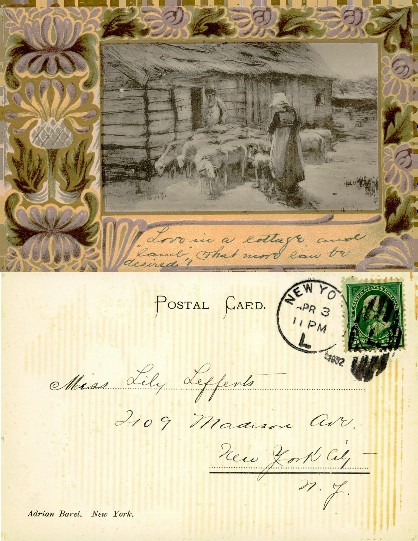 "Love in a cottage, and
"lamb", what more can be
desired?"
POSTAL CARD.
NEW YO
APR 3
11 PM
L
1902
Miss Lily Lefferts
2109 Madison Ave.
New York City
N. Y.
Adrian Bavel. New York.